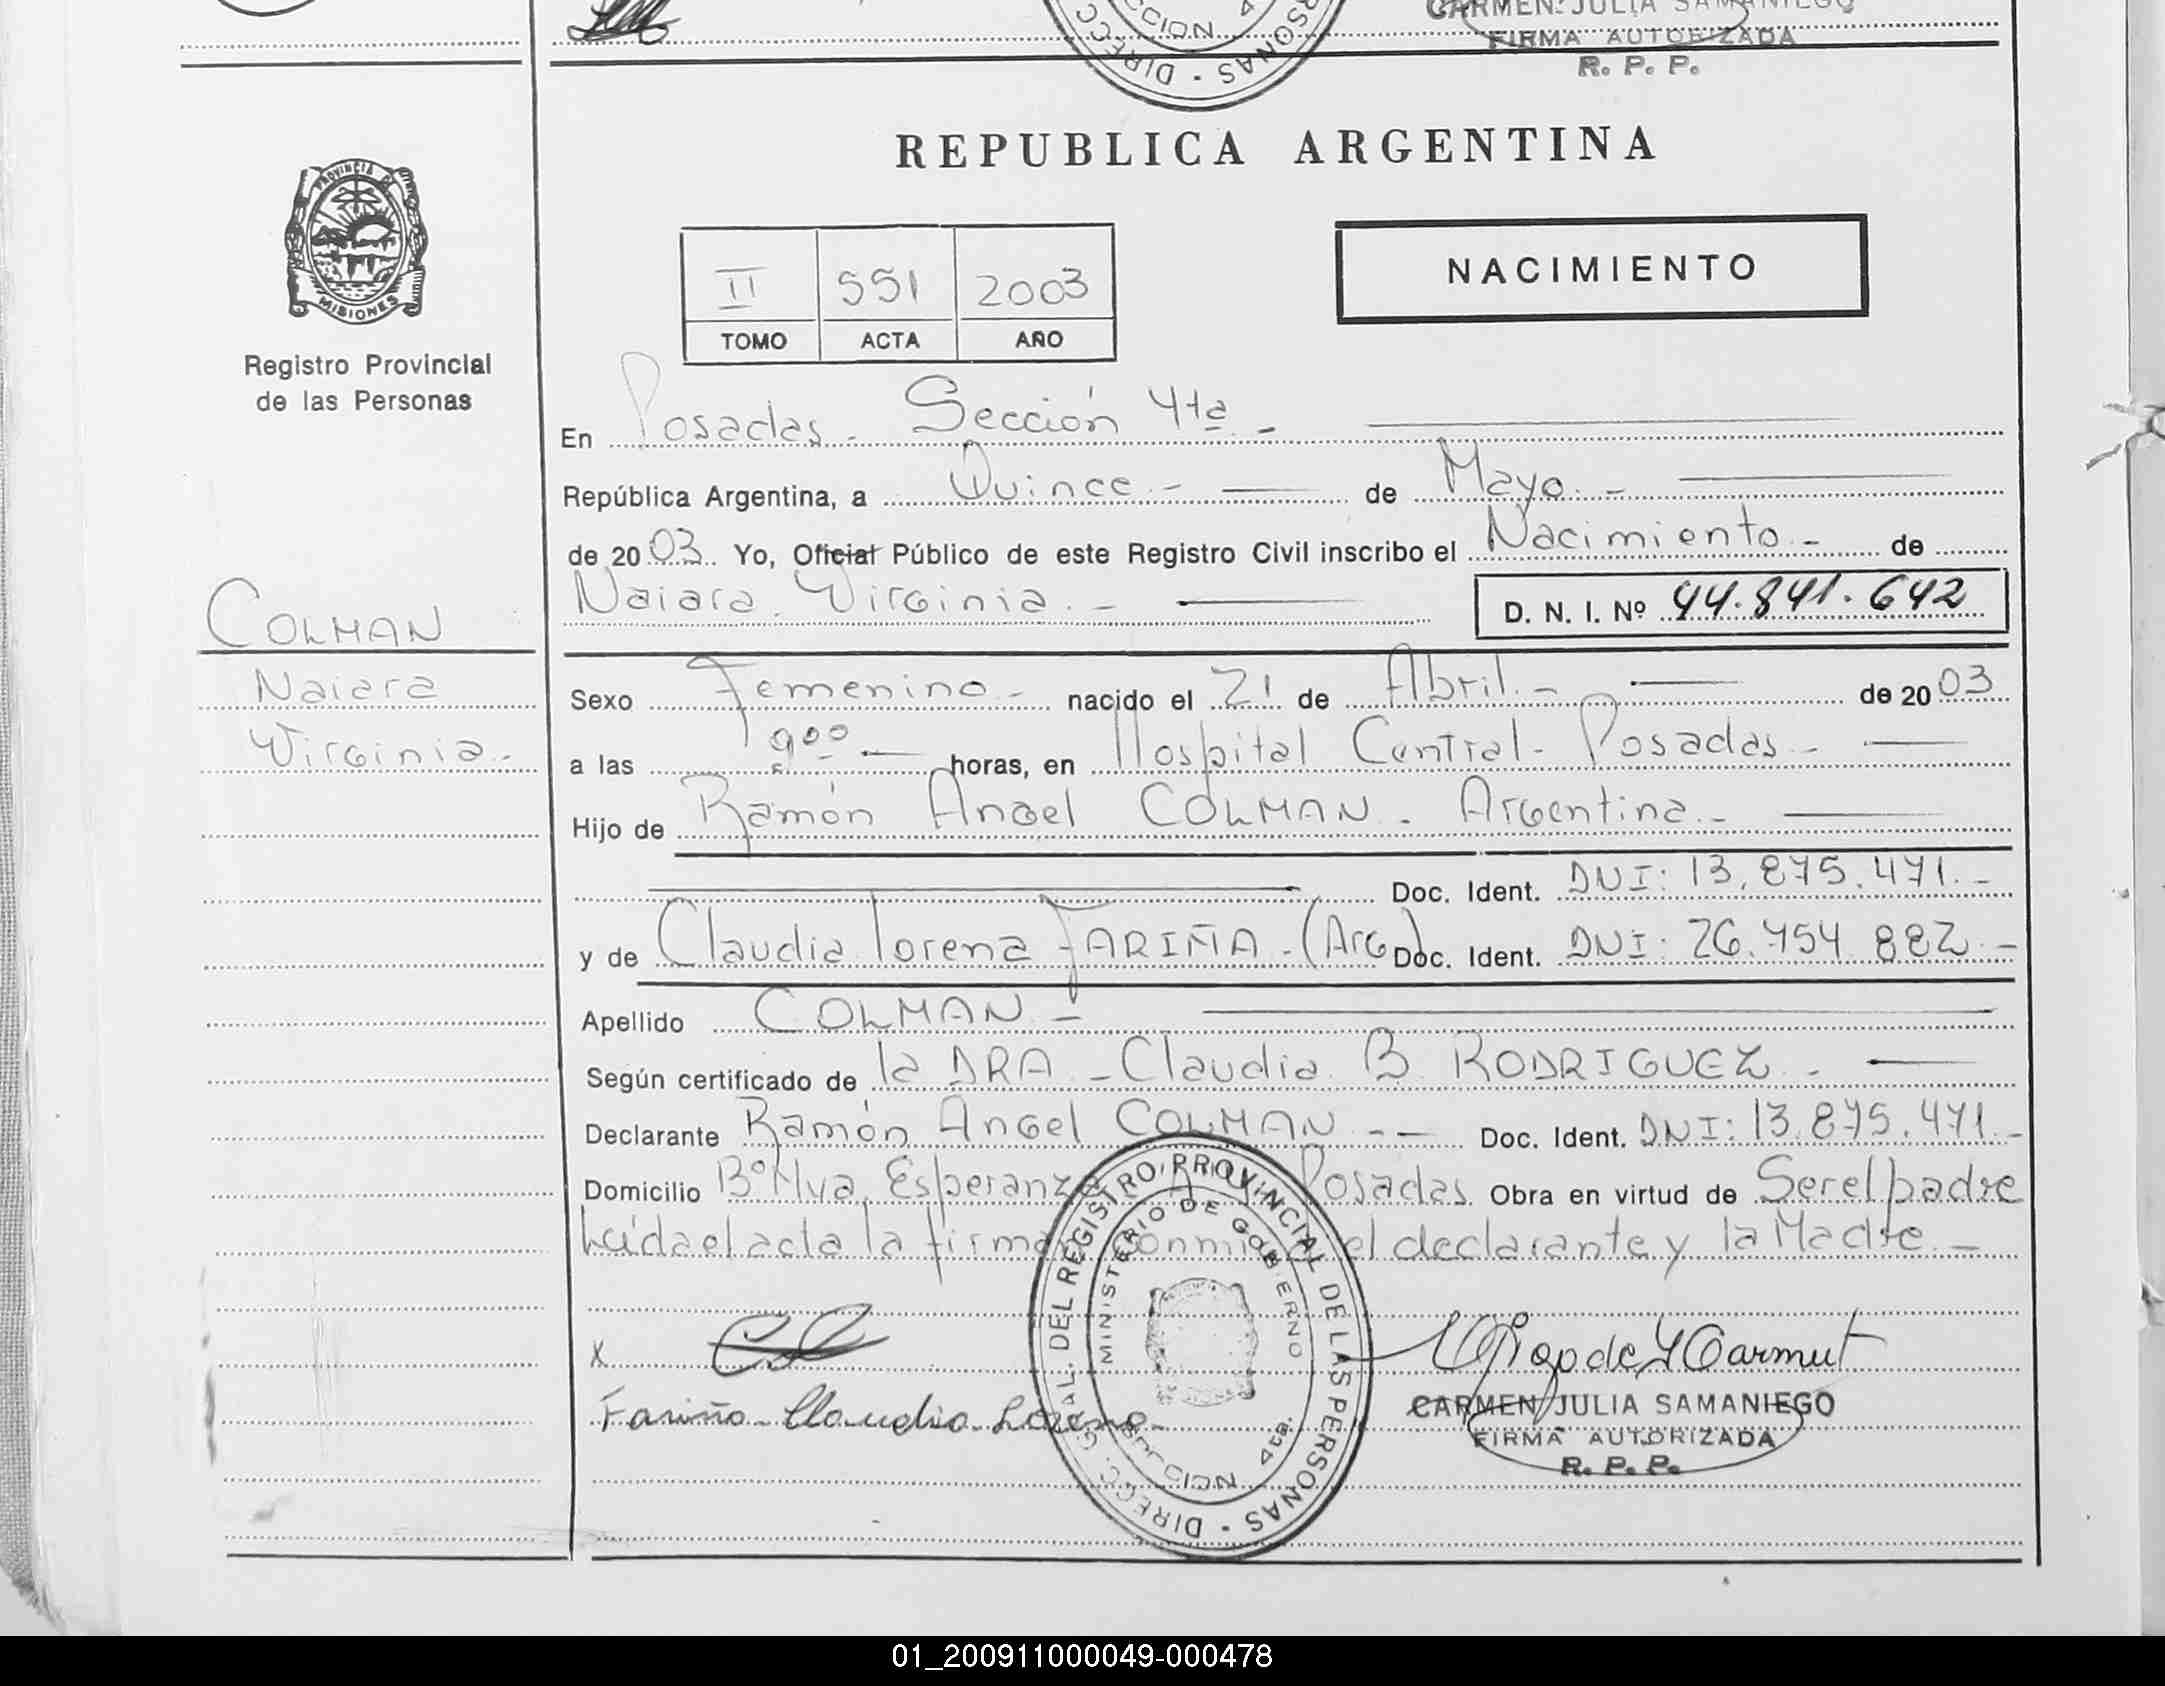 CCION 4
DIRECC
PERSONAS
CARMEN JULIA SAMANIEGO
FIRMA AUTORIZADA
R. P. P.
PROVINCIA DE
MISIONES
Registro Provincial
de las Personas
REPUBLICA ARGENTINA
II 551 2003
TOMO ACTA AÑO
NACIMIENTO
En Posadas - Sección 4ta -
República Argentina, a Quince - de Mayo -
de 2003 Yo, Oficial Público de este Registro Civil inscribo el Nacimiento - de
Naiara Virginia. - D. N. I. Nº 44.841.642
COLMAN
Naiara
Virginia.-
Sexo Femenino - nacido el 21 de Abril.- de 2003
a las 9:00 horas, en Hospital Central - Posadas -
Hijo de Ramón Angel COLMAN. Argentina.-
Doc. Ident. DNI: 13.875.471.-
y de Claudia lorena FARIÑA - (Arg) Doc. Ident. DNI: 26.754.882.-
Apellido COLMAN -
Según certificado de la DRA - Claudia B RODRIGUEZ.
Declarante Ramón Angel COLMAN - - Doc. Ident. DNI: 13.875.471.-
Domicilio Bº Nva. Esperanza Posadas. Obra en virtud de Ser el padre
Leída el acta la firman conmigo el declarante y la Madre.-
X
Fariña Claudia Lorena
DIRECC. GRAL. DEL REGISTRO PROVINCIAL DE LAS PERSONAS
MINISTERIO DE GOBIERNO
SECCION 4ta.
CARMEN JULIA SAMANIEGO
FIRMA AUTORIZADA
R. P. P.
01_200911000049-000478